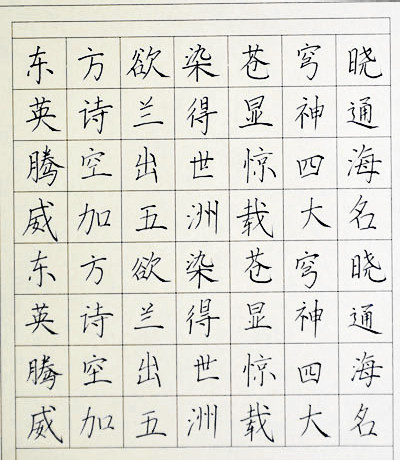 东方欲染苍穹晓
英诗兰得显神通
腾空出世惊四海
威加五洲载大名
东方欲染苍穹晓
英诗兰得显神通
腾空出世惊四海
威加五洲载大名